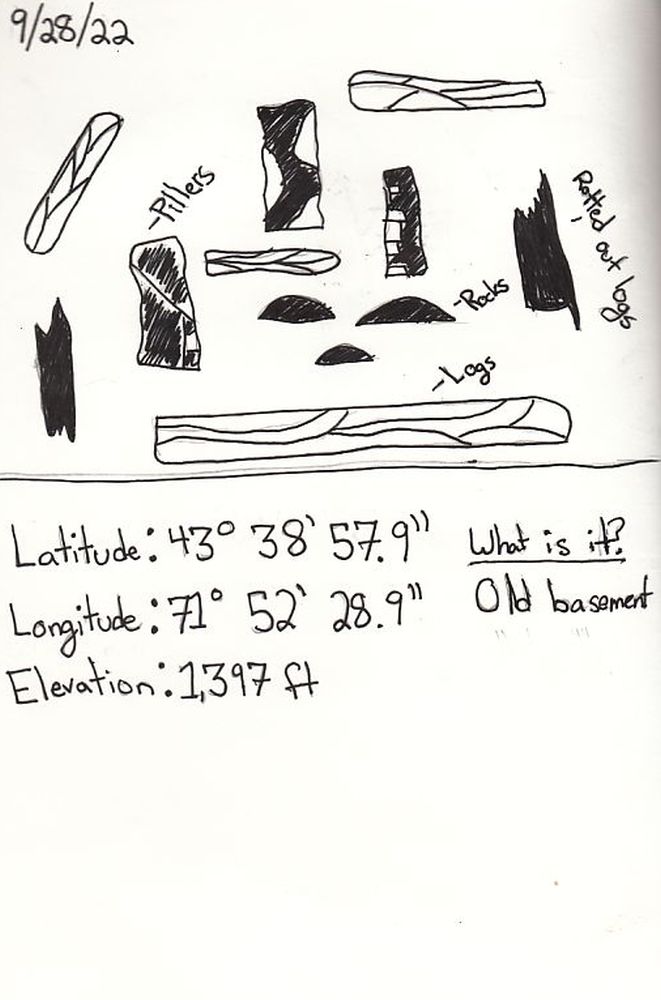 9/28/22
-Pillers
Rotted out logs
-Rocks
-Logs
Latitude: 43° 38' 57.9"
What is it?
Longitude: 71° 52' 28.9"
Old basement
Elevation: 1,397 ft